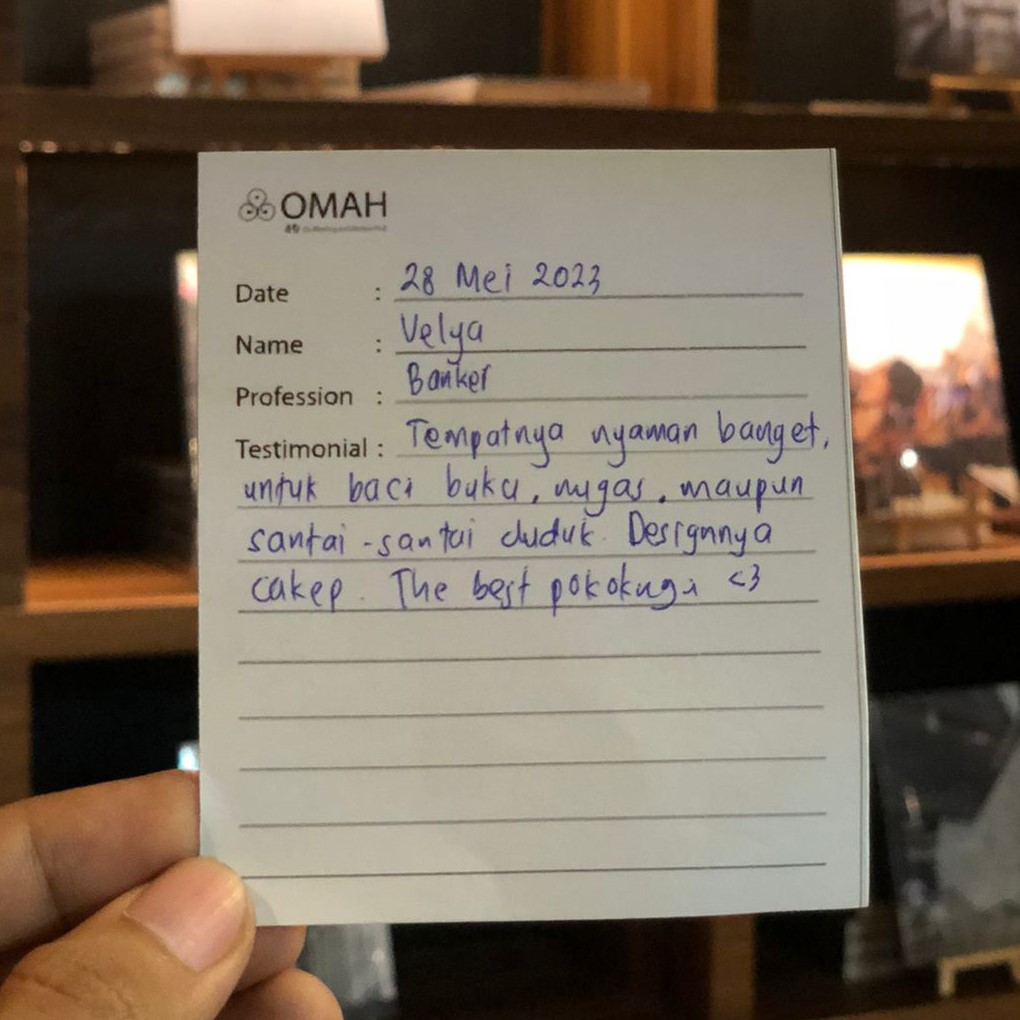 OMAH
Date : 28 Mei 2023
Name : Velya
Profession : Banker
Testimonial : Tempatnya nyaman banget,
untuk baca buku, nugas, maupun
santai-santai duduk. Designnya
cakep. The best pokoknya <3